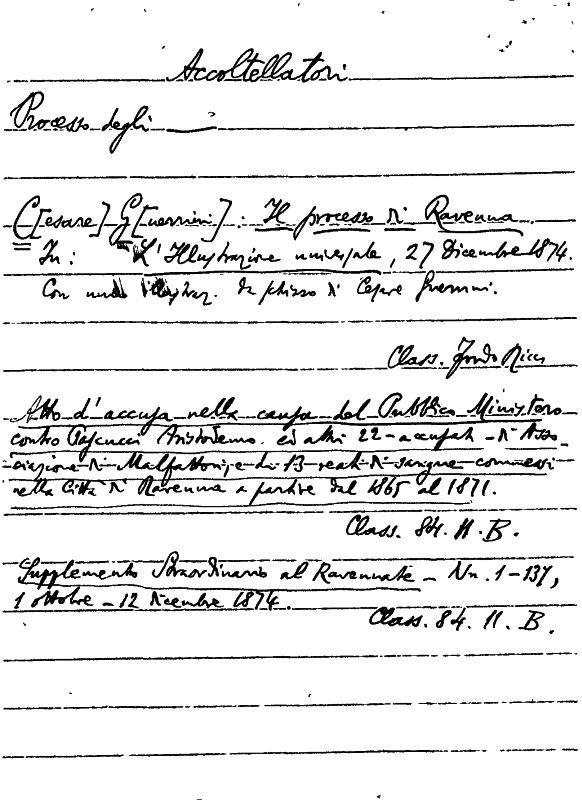 Accoltellatori
Processo degli ——
C[esare] G[uerrini]: Il processo di Ravenna.
In: "L'Illustrazione universale, 27 Dicembre 1874.
Con illustraz. da schizzo di Cesare Guerrini.
Class. Fondo Ricci
Atto d'accusa nella causa del Pubblico Ministero
contro Pascucci Aristodemo ed altri 22 accusati di Asso-
ciazione di Malfattori, e di 13 reati di sangue commessi
nella Città di Ravenna a partire dal 1865 al 1871.
Class. 84. 11. B.
Supplemento Straordinario al Ravennate - Nn. 1-137,
1 ottobre - 12 dicembre 1874.
Class. 84. 11. B.